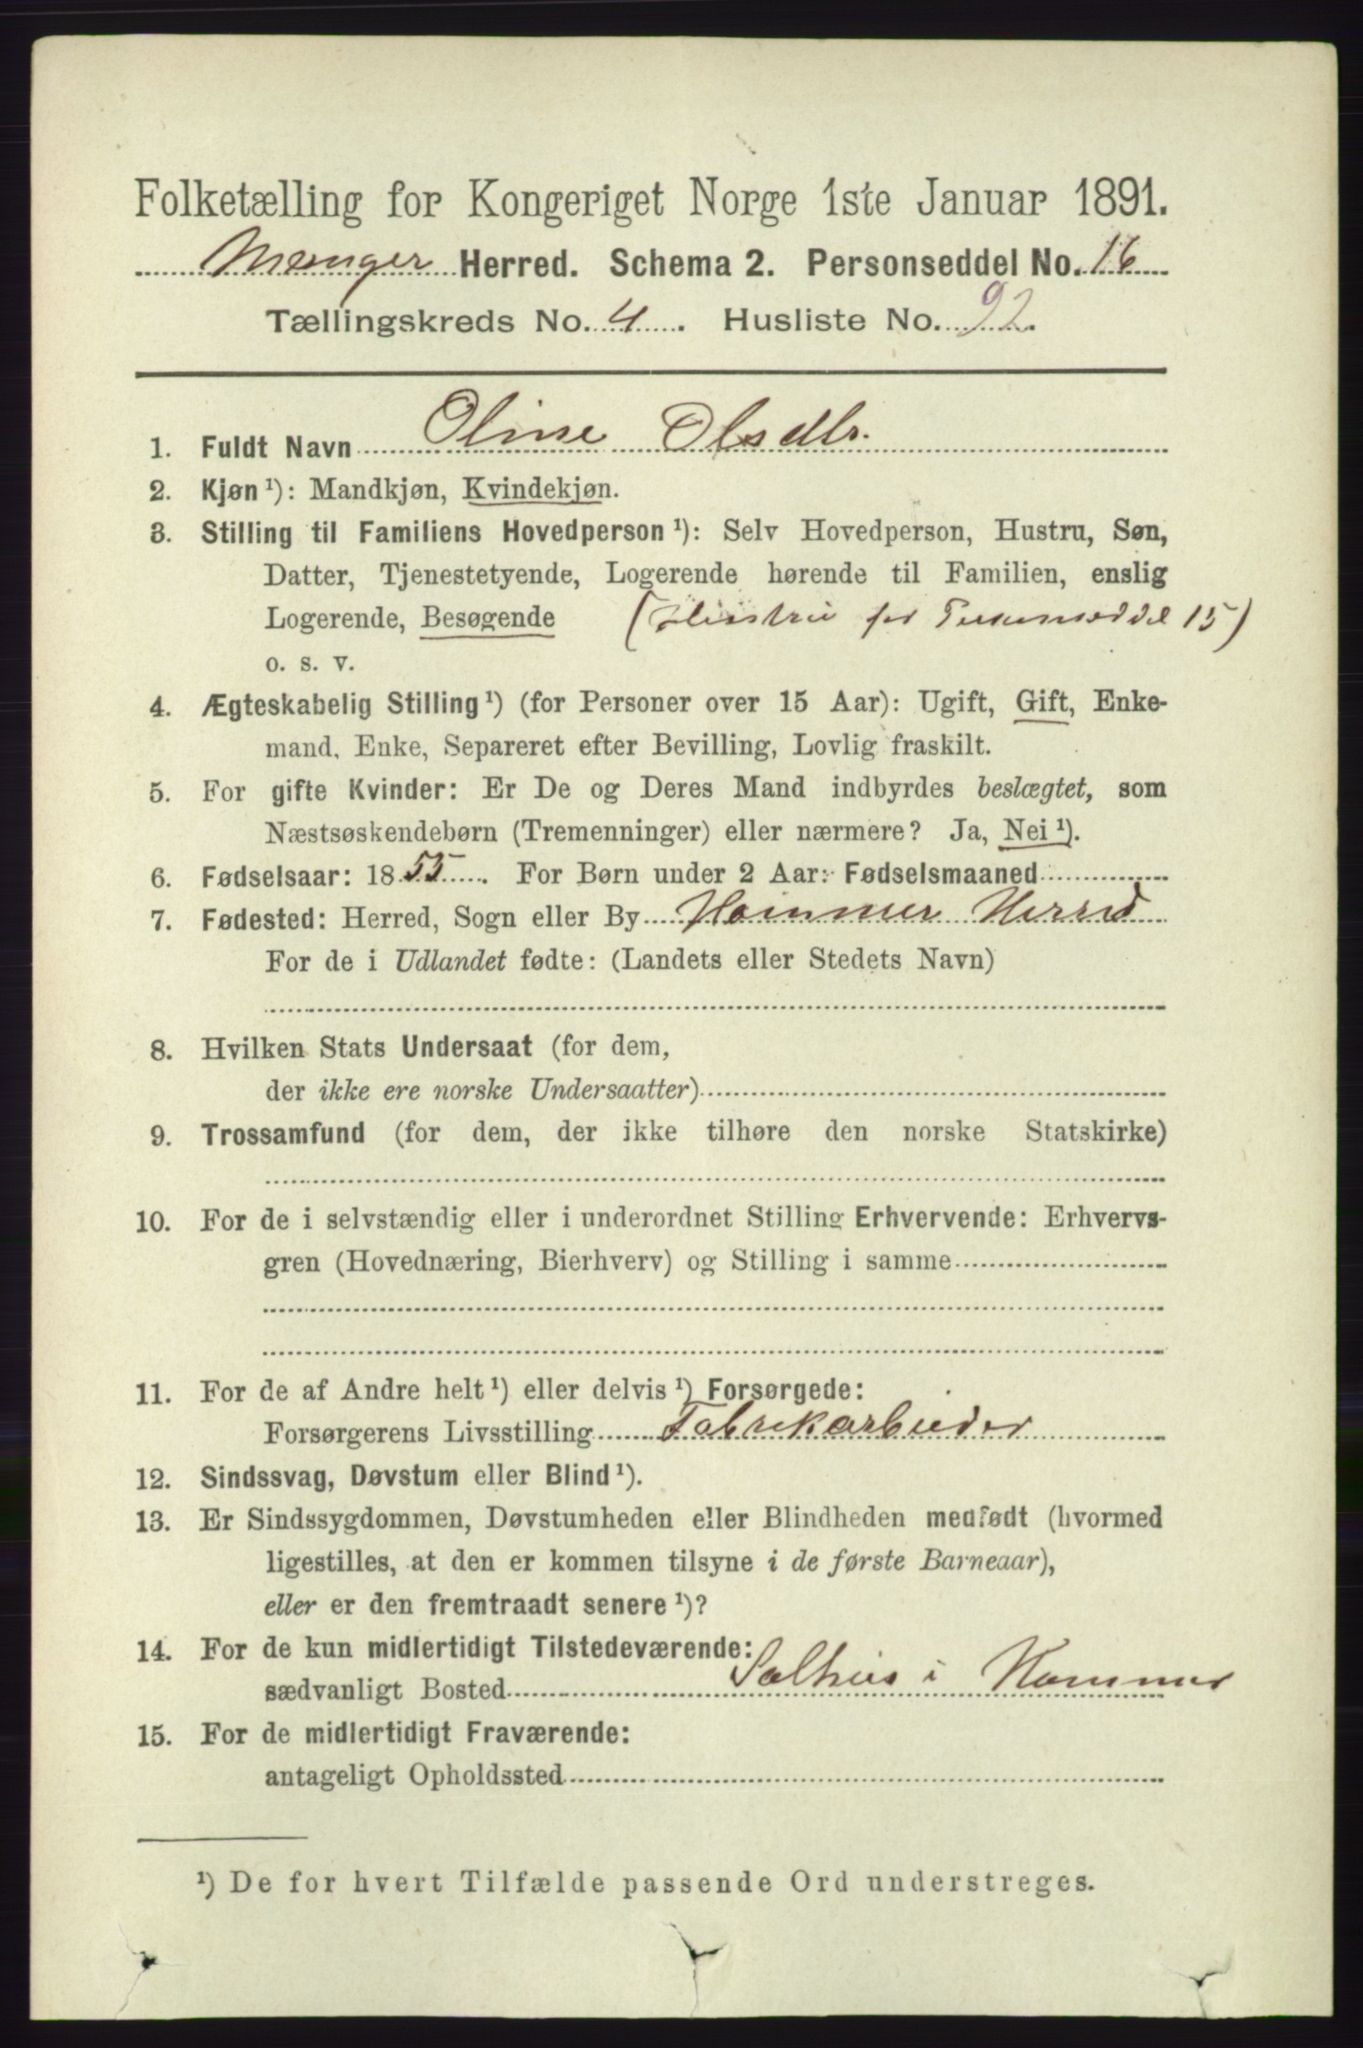 Folketælling for Kongeriget Norge 1ste Januar 1891.
Manger Herred. Schema 2. Personseddel No. 16
Tællingskreds No. 4. Husliste No. 92.
1. Fuldt Navn Oline Olsdtr.
2. Kjøn ¹): Mandkjøn, Kvindekjøn.
3. Stilling til Familiens Hovedperson ¹): Selv Hovedperson, Hustru, Søn,
Datter, Tjenestetyende, Logerende hørende til Familien, enslig
Logerende, Besøgende (Hustru for Personseddel 15)
o. s. v.
4. Ægteskabelig Stilling ¹) (for Personer over 15 Aar): Ugift, Gift, Enke-
mand, Enke, Separeret efter Bevilling, Lovlig fraskilt.
5. For gifte Kvinder: Er De og Deres Mand indbyrdes beslægtet, som
Næstsøskendebørn (Tremenninger) eller nærmere? Ja, Nei ¹).
6. Fødselsaar: 1855. For Børn under 2 Aar: Fødselsmaaned
7. Fødested: Herred, Sogn eller By Hammer Herred
For de i Udlandet fødte: (Landets eller Stedets Navn)
8. Hvilken Stats Undersaat (for dem,
der ikke ere norske Undersaatter)
9. Trossamfund (for dem, der ikke tilhøre den norske Statskirke)
10. For de i selvstændig eller i underordnet Stilling Erhvervende: Erhvervs-
gren (Hovednæring, Bierhverv) og Stilling i samme
11. For de af Andre helt ¹) eller delvis ¹) Forsørgede:
Forsørgerens Livsstilling Fabrikarbeider
12. Sindssvag, Døvstum eller Blind ¹).
13. Er Sindssygdommen, Døvstumheden eller Blindheden medfødt (hvormed
ligestilles, at den er kommen tilsyne i de første Barneaar),
eller er den fremtraadt senere ¹)?
14. For de kun midlertidigt Tilstedeværende:
sædvanligt Bosted Salhus i Hammer
15. For de midlertidigt Fraværende:
antageligt Opholdssted
¹) De for hvert Tilfælde passende Ord understreges.